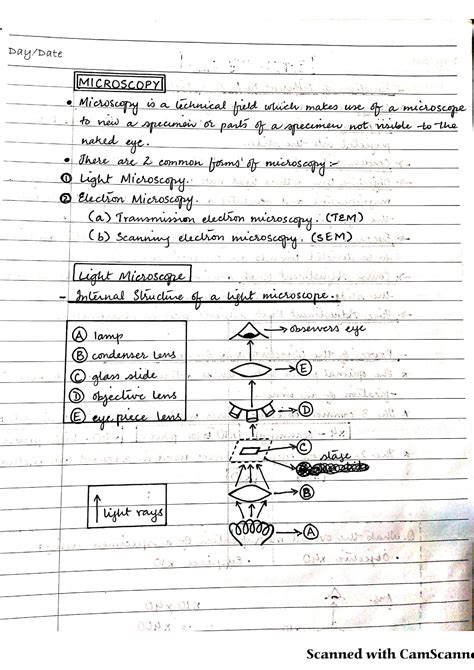 Day/Date
MICROSCOPY
• Microscopy is a technical field which makes use of a microscope
to view a specimen or parts of a specimen not visible to the
naked eye.
• There are 2 common forms of microscopy:-
① Light Microscopy.
② Electron Microscopy.
(a) Transmission electron microscopy. (TEM)
(b) Scanning electron microscopy. (SEM)
Light Microscope
- Internal Structure of a light microscope.
Ⓐ lamp
Ⓑ condenser lens
Ⓒ glass slide
Ⓓ objective lens
Ⓔ eye piece lens
observers eye
Ⓔ
Ⓓ
Ⓒ
stage
Ⓑ
light rays
Ⓐ
Scanned with CamScanne